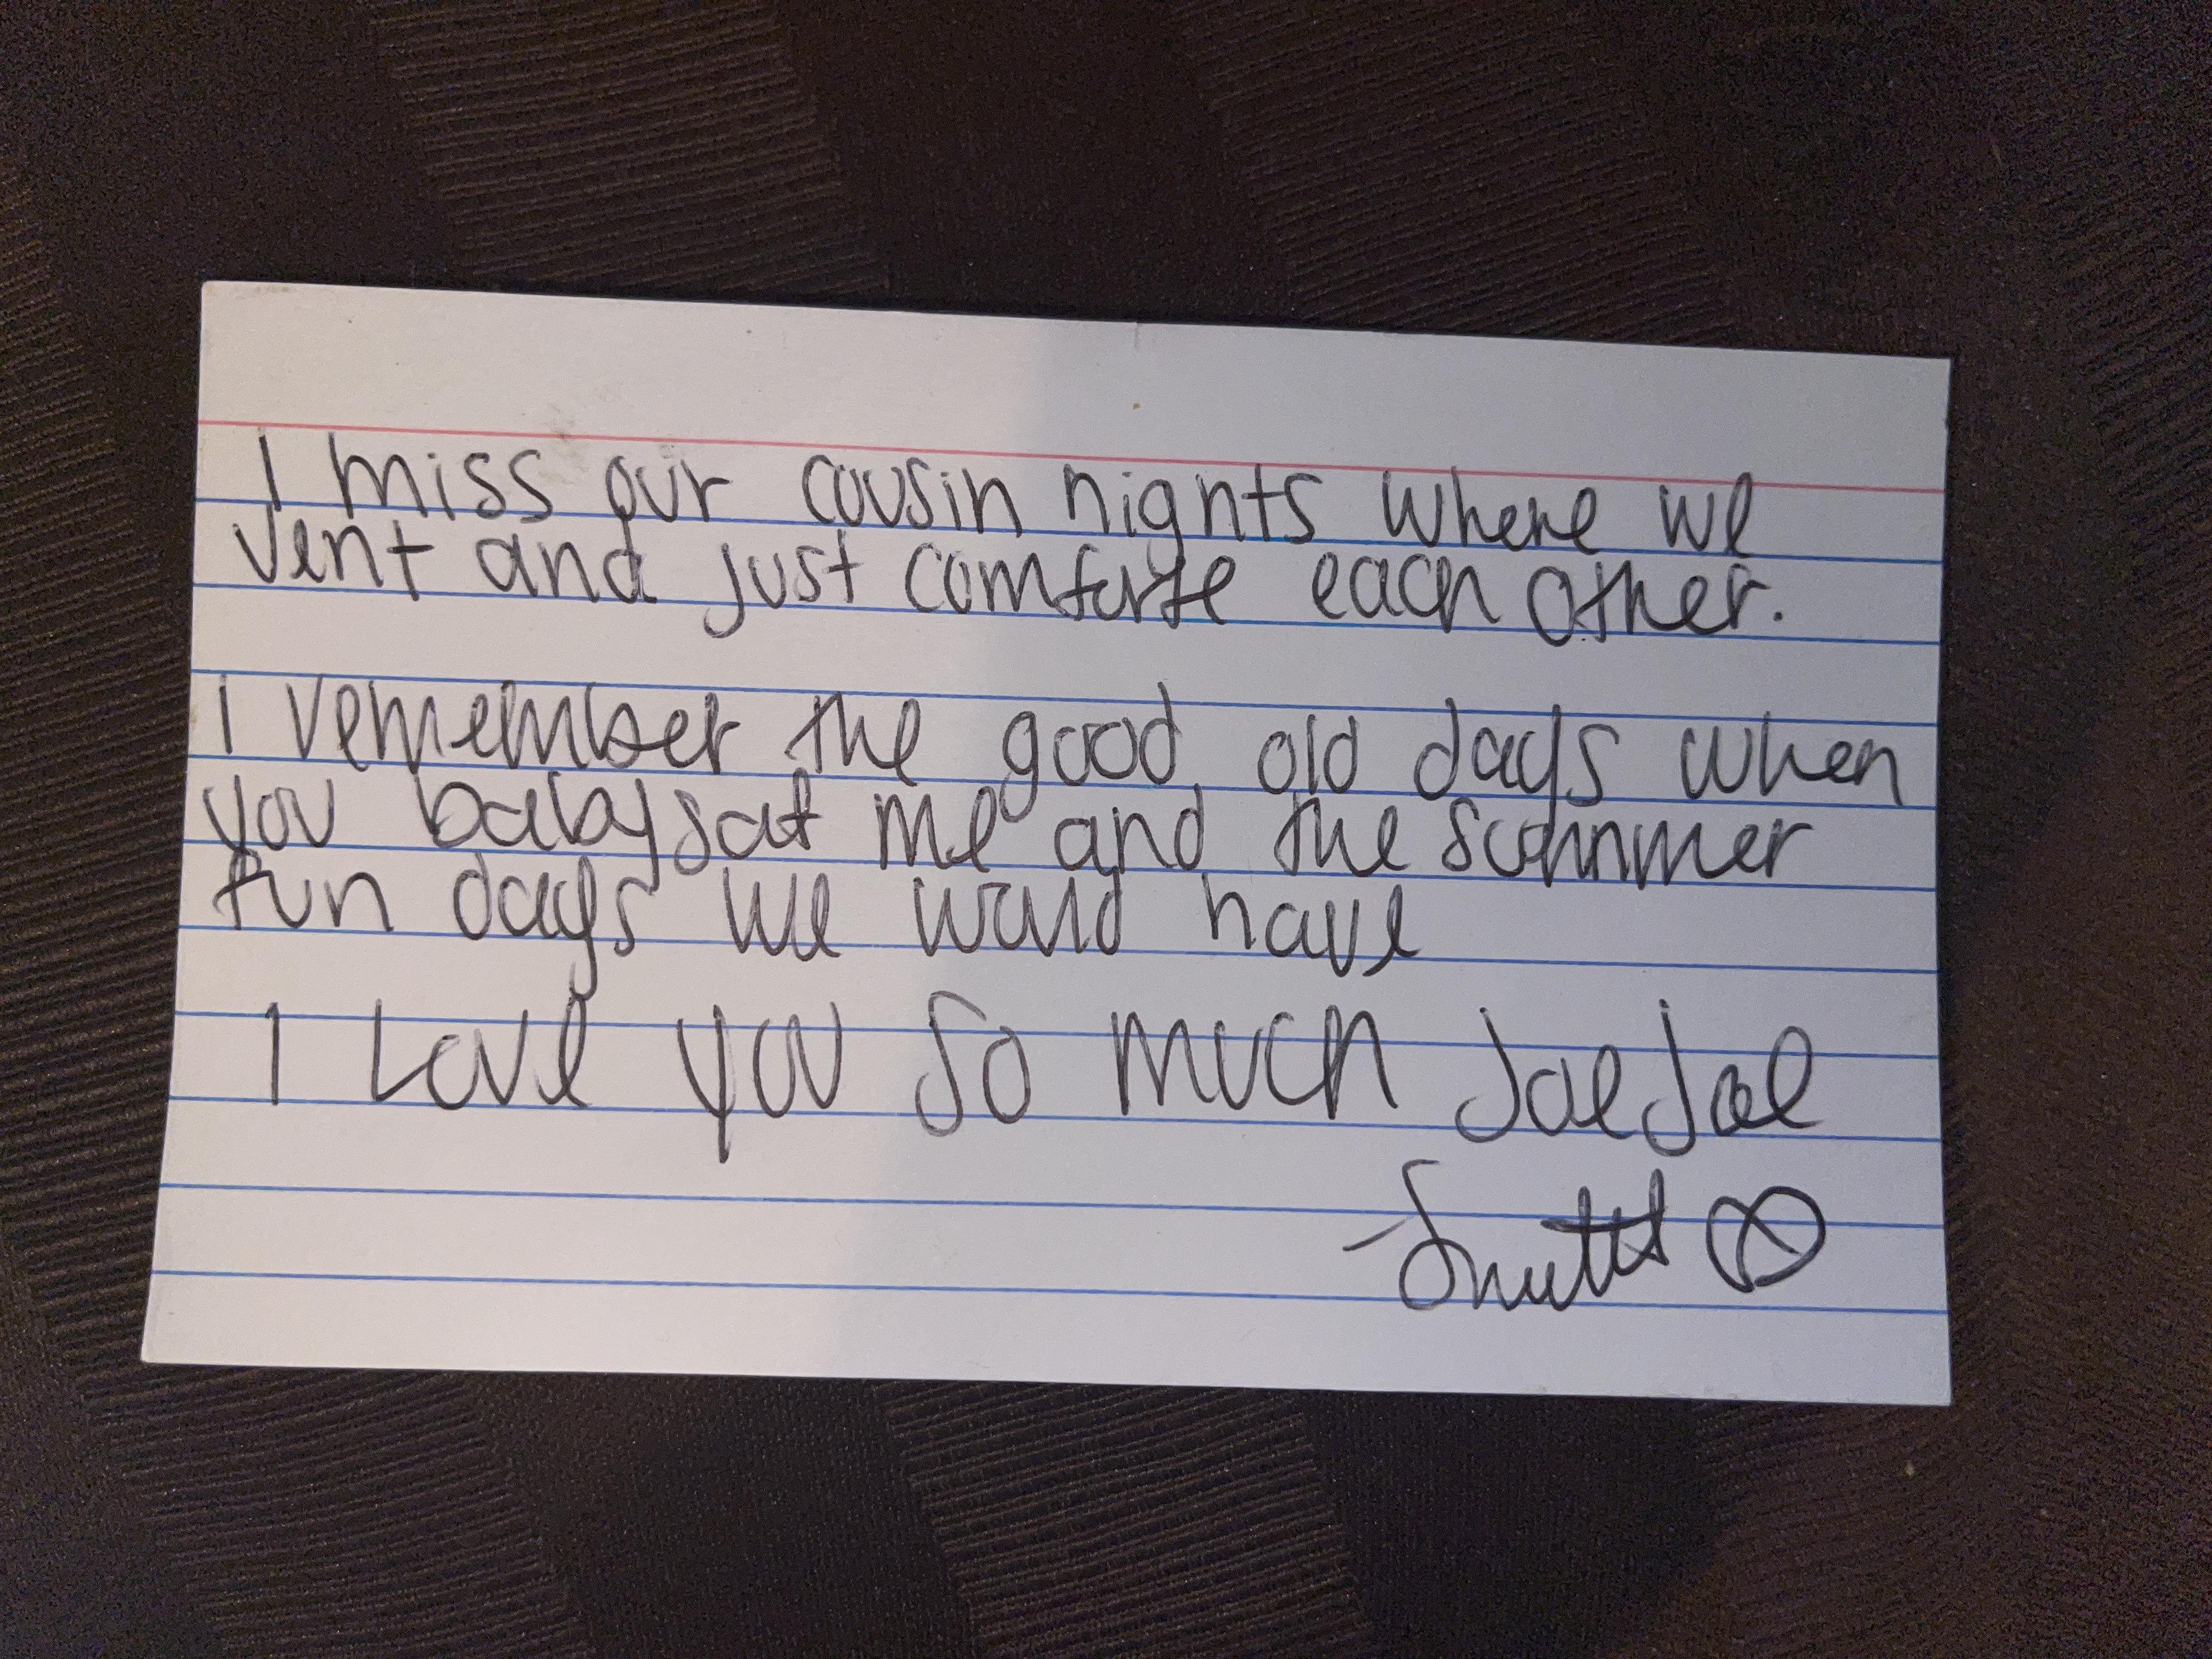 I miss our cousin nights where we
vent and just comforte each other.
I remember the good old days when
you babysat me and the summer
fun days we would have
I Love you so much JoeJoe